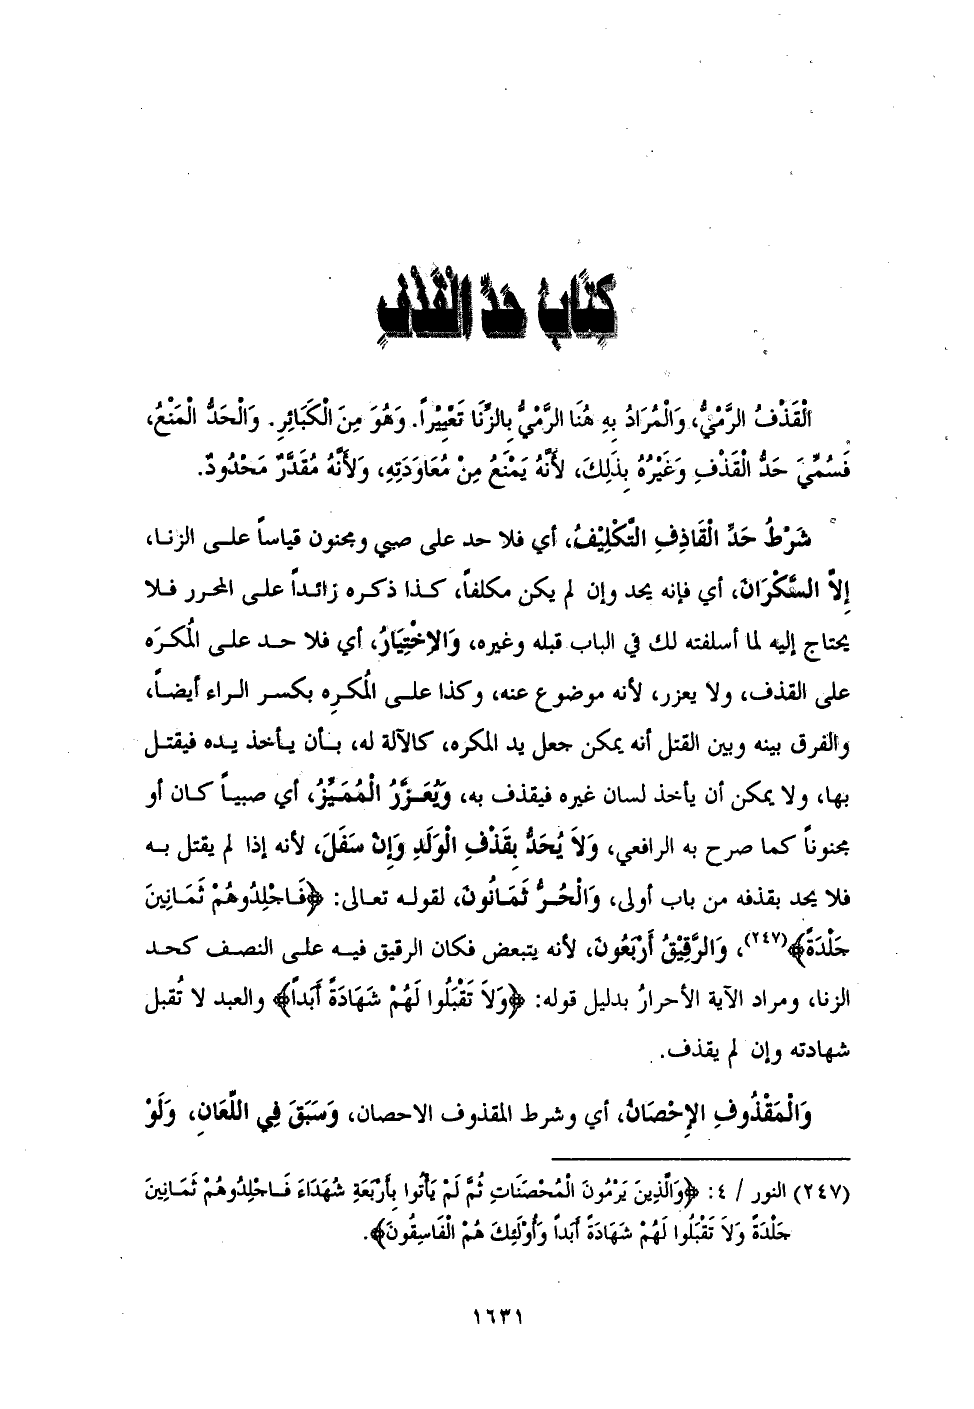 كِتَابُ حَدِّ الْقَذْفِ
الْقَذْفُ الرَّمْيُ، وَالْمُرَادُ بِهِ هُنَا الرَّمْيُ بِالزِّنَا تَعْيِيْراً. وَهُوَ مِنَ الْكَبَائِرِ. وَالْحَدُّ الْمَنْعُ،
فَسُمِّيَ حَدُّ الْقَذْفِ وَغَيْرُهُ بِذَلِكَ، لأَنَّهُ يَمْنَعُ مِنْ مُعَاوَدَتِهِ، وَلأَنَّهُ مُقَدَّرٌ مَحْدُودٌ.
شَرْطُ حَدِّ الْقَاذِفِ التَّكْلِيْفُ، أي فلا حد على صبي ومجنون قياساً على الزنا،
إِلاَّ السَّكْرَانَ، أي فإنه يحد وإن لم يكن مكلفاً، كذا ذكره زائداً على المحرر فلا
يحتاج إليه لما أسلفته لك في الباب قبله وغيره، وَالإِخْتِيَارُ، أي فلا حد على المُكرَه
على القذف، ولا يعزر، لأنه موضوع عنه، وكذا على المُكرِه بكسر الراء أيضاً،
والفرق بينه وبين القتل أنه يمكن جعل يد المكره، كالآلة له، بأن يأخذ يده فيقتل
بها، ولا يمكن أن يأخذ لسان غيره فيقذف به، وَيُعَزَّرُ الْمُمَيِّزُ، أي صبياً كان أو
مجنوناً كما صرح به الرافعي، وَلاَ يُحَدُّ بِقَذْفِ الْوَلَدِ وَإِنْ سَفَلَ، لأنه إذا لم يقتل به
فلا يحد بقذفه من باب أولى، وَالْحُرُّ ثَمَانُونَ، لقوله تعالى: ﴿فَاجْلِدُوهُمْ ثَمَانِينَ
جَلْدَةً﴾(٢٤٧)، وَالرَّقِيْقُ أَرْبَعُونَ، لأنه يتبعض فكان الرقيق فيه على النصف كحد
الزنا، ومراد الآية الأحرارُ بدليل قوله: ﴿وَلاَ تَقْبَلُوا لَهُمْ شَهَادَةً أَبَداً﴾ والعبد لا تُقبل
شهادته وإن لم يقذف.
وَالْمَقْذُوفِ الإِحْصَانُ، أي وشرط المقذوف الاحصان، وَسَبَقَ فِي اللِّعَانِ، وَلَوْ
(٢٤٧) النور / ٤: ﴿وَالَّذِينَ يَرْمُونَ الْمُحْصَنَاتِ ثُمَّ لَمْ يَأْتُوا بِأَرْبَعَةِ شُهَدَاءَ فَاجْلِدُوهُمْ ثَمَانِينَ
جَلْدَةً وَلاَ تَقْبَلُوا لَهُمْ شَهَادَةً أَبَداً وَأُوْلَئِكَ هُمْ الْفَاسِقُونَ﴾.
١٦٣١